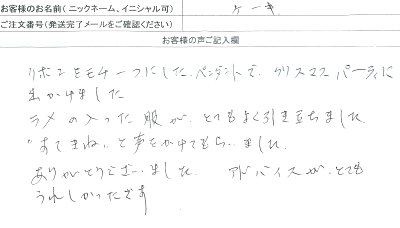 お客様のお名前(ニックネーム、イニシャル可) ケーキ
ご注文番号(発送完了メールをご確認ください)
お客様の声ご記入欄
リボンをモチーフにした.ペンダントで、クリスマスパーティに
出かけました
ラメの入った服が、とてもよく引き立ちました
"すてきね"と声をかけてもらいました
ありがとうございました. アドバイスが、とても
うれしかったです